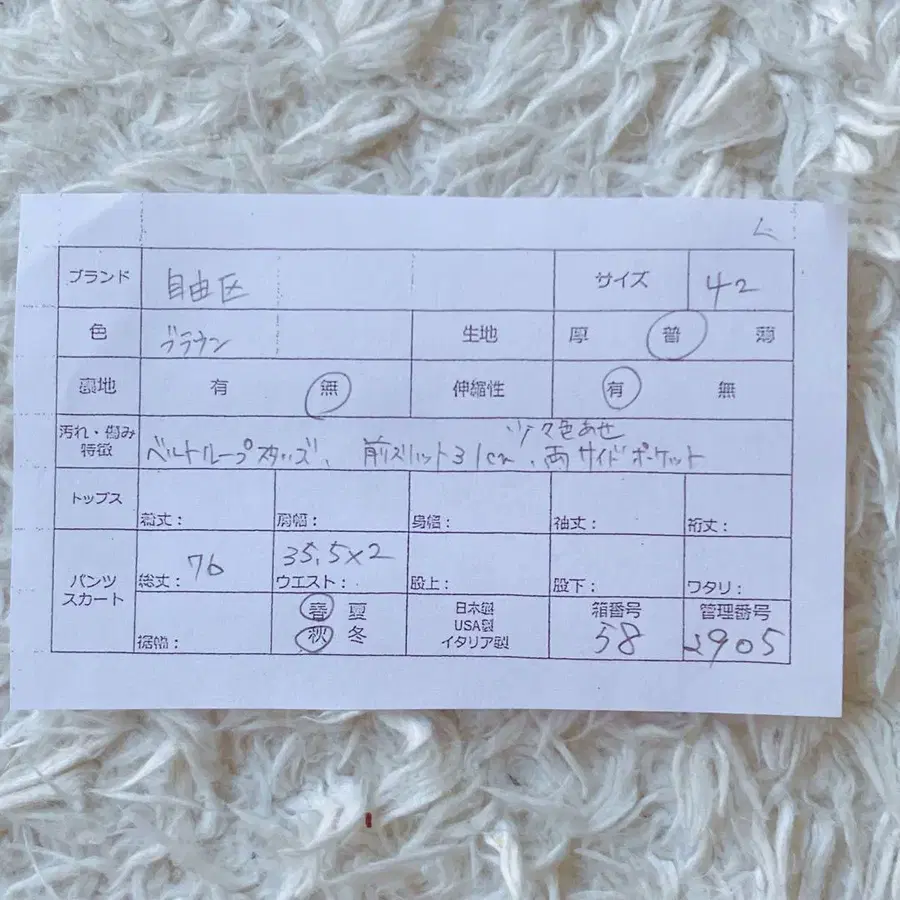 ム
ブランド 自由区 サイズ 42
色 ブラウン 生地 厚 普 薄
裏地 有 無 伸縮性 有 無
色あせ
汚れ・傷み 特徴 ベルトループ 前スリット31cm、両サイドポケット
トップス 着丈: 肩幅: 身幅: 袖丈: 裄丈:
パンツ スカート 総丈: 76 ウエスト: 35.5×2 股上: 股下: ワタリ:
裾幅: 春 夏 秋 冬 日本製 USA製 イタリア製 箱番号 58 管理番号 2905